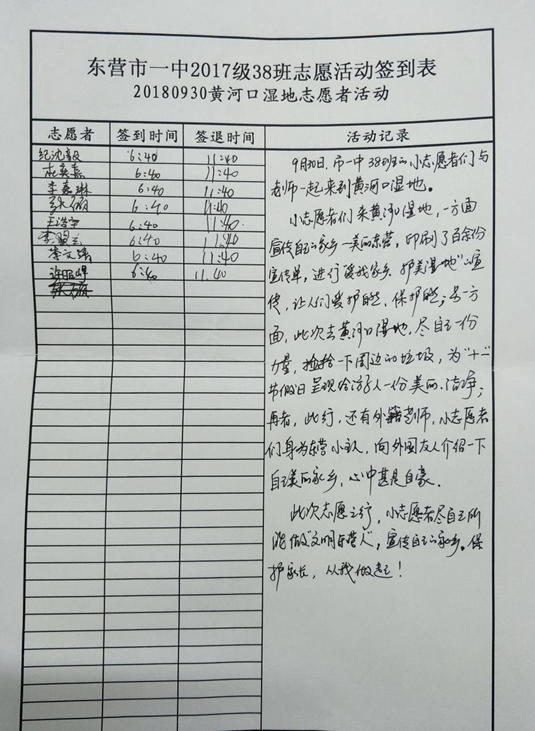 东营市一中2017级38班志愿活动签到表
20180930黄河口湿地志愿者活动
志愿者 签到时间 签退时间 活动记录
纪沈毅 6:40 11:40
杜奕嘉 6:40 11:40
李嘉琳 6:40 11:40
6:40 11:40
王浩宇 6:40 11:40
6:40 11:40
李文靖 6:40 11:40
6:40 11.40
9月30日,市一中38班的小志愿者们与
老师一起来到黄河口湿地。
小志愿者们来黄河口湿地,一方面
宣传自己的家乡—美丽东营,印刷了百余份
宣传单,进行"爱我家乡 护美湿地"宣
传,让人们爱护自然,保护自然;另一方
面,此次去黄河口湿地,尽自己一份
力量,捡拾一下周边的垃圾,为"十一"
节假日呈现给游人一份美丽、洁净;
再者,此行,还有外籍老师,小志愿者
们身为东营小主人,向外国友人介绍一下
自己美丽家乡,心中甚是自豪.
此次志愿之行,小志愿者尽自己所
能做"文明东营人",宣传自己的家乡。保
护家乡,从我做起!